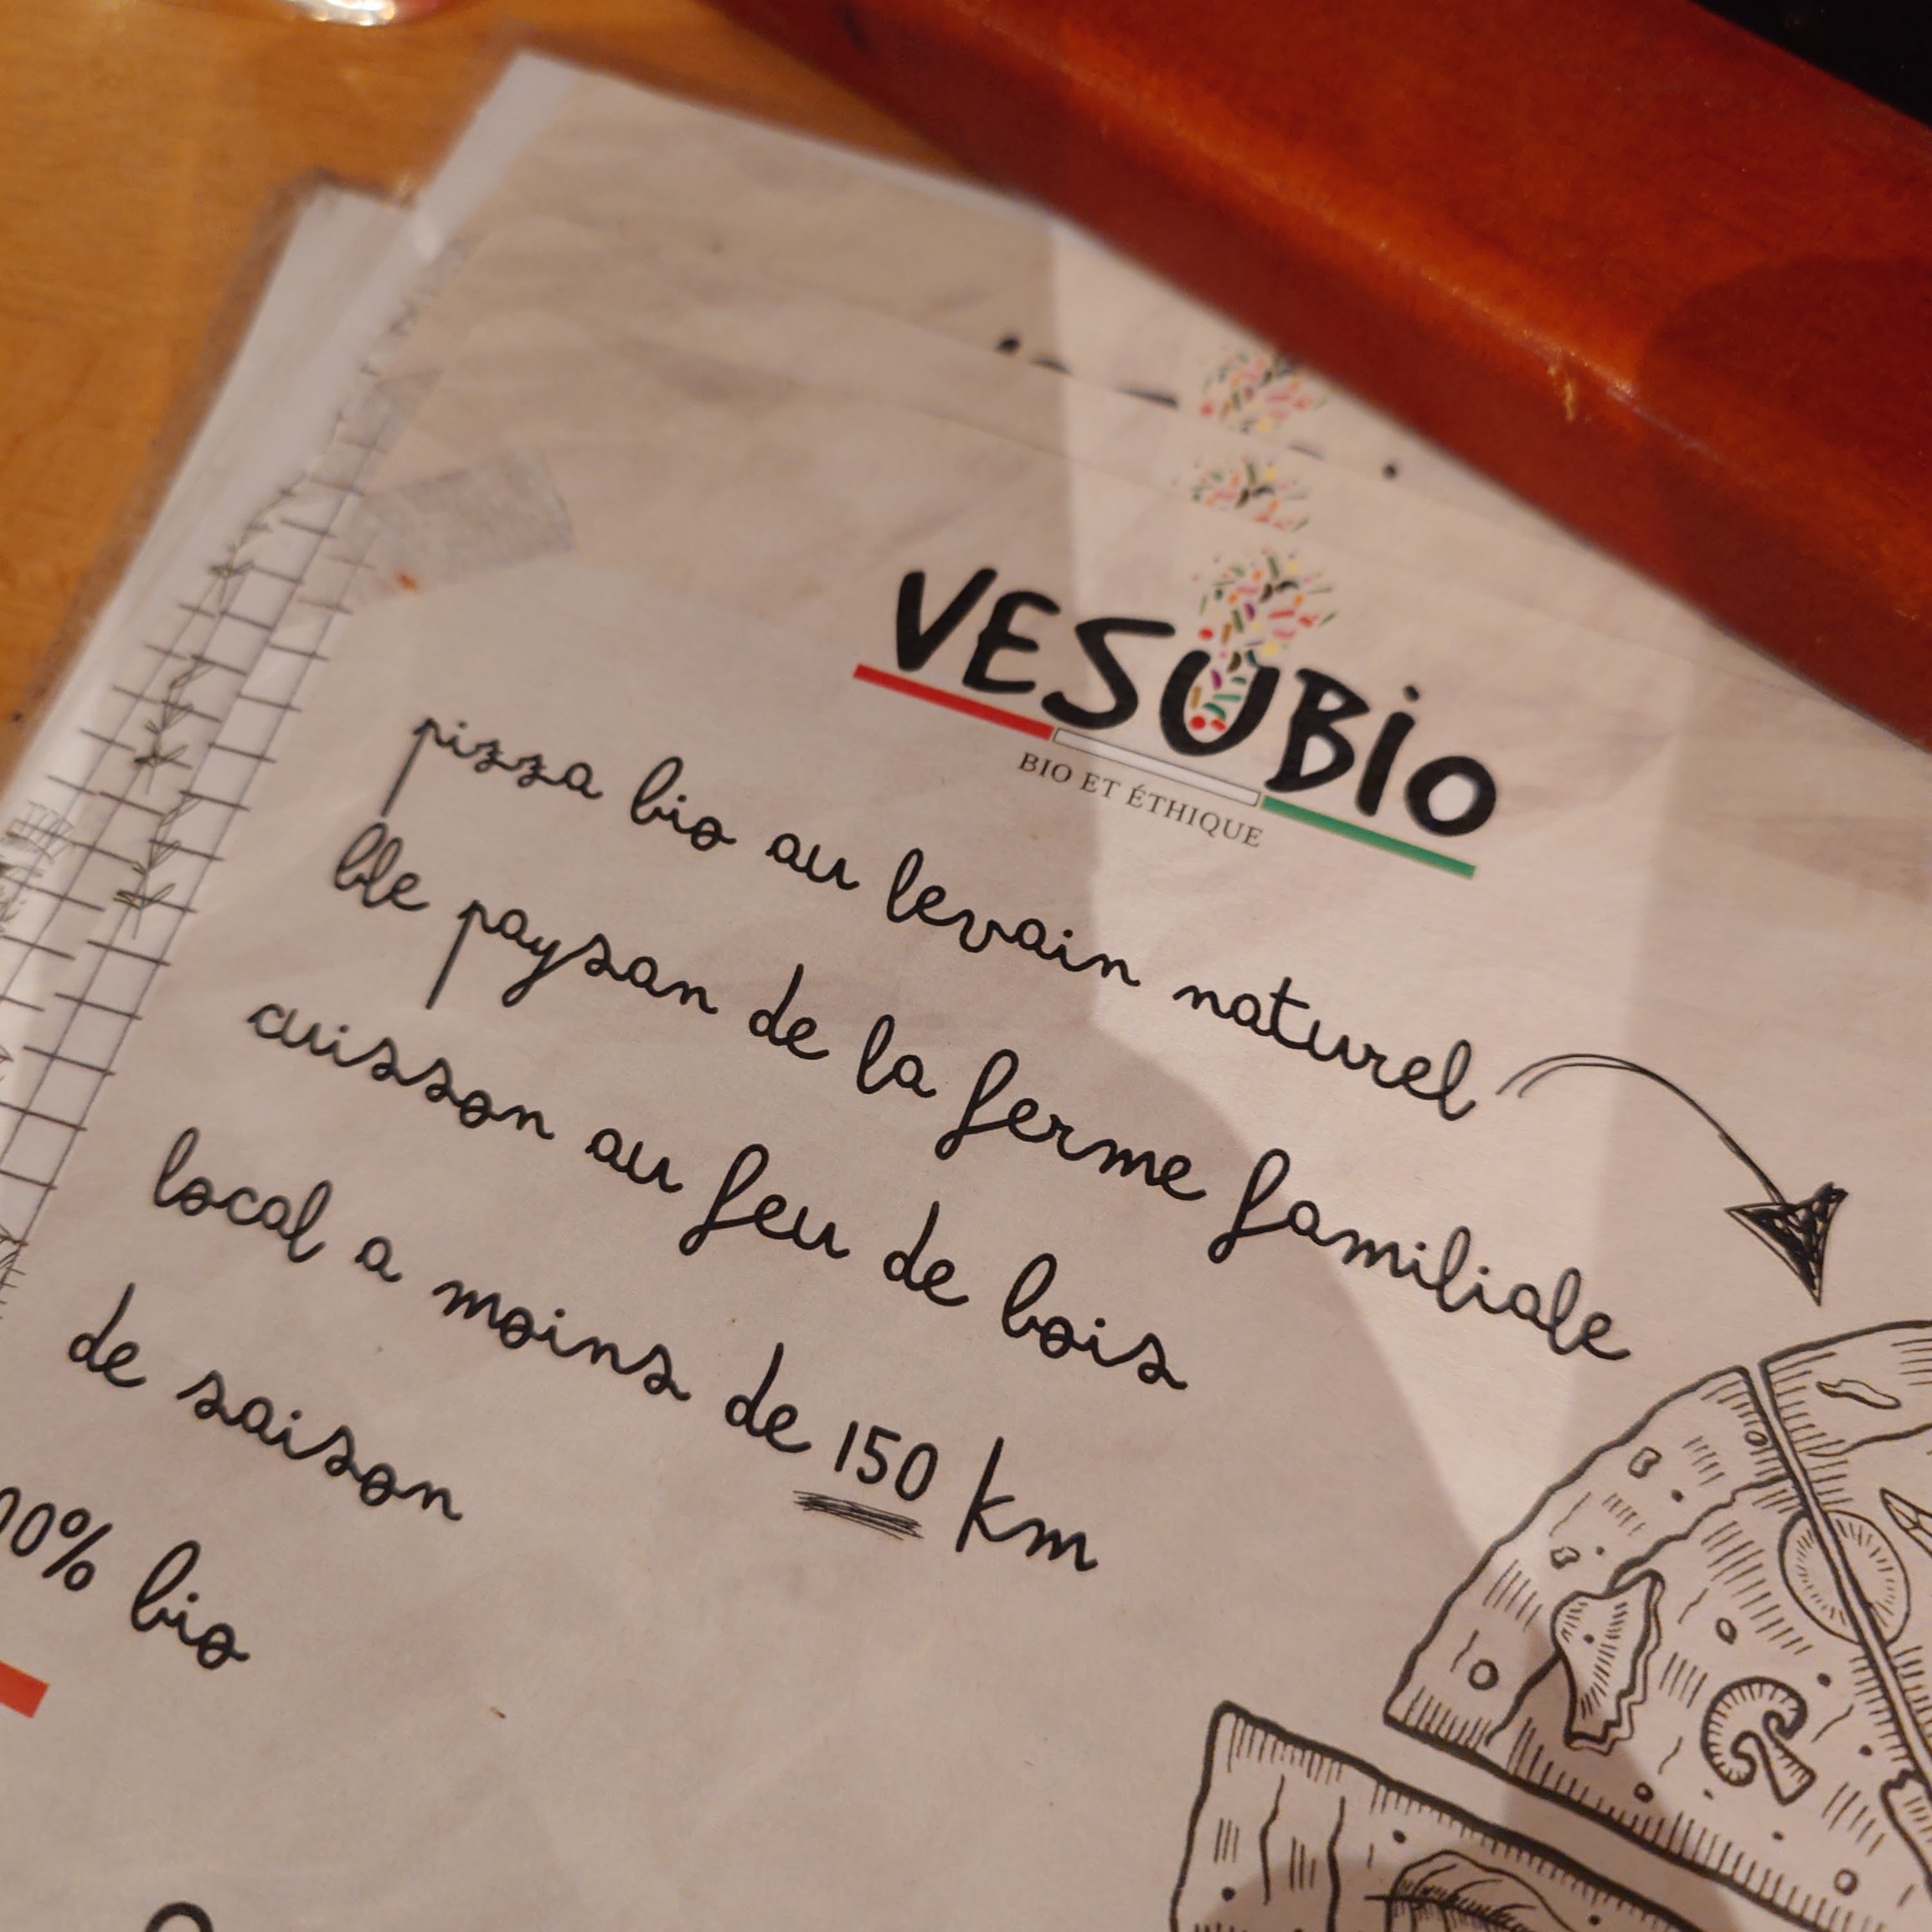 VESUBIO
BIO ET ÉTHIQUE
pizza bio au levain naturel
ble paysan de la ferme familiale
cuisson au feu de bois
local a moins de 150 km
de saison
00% bio